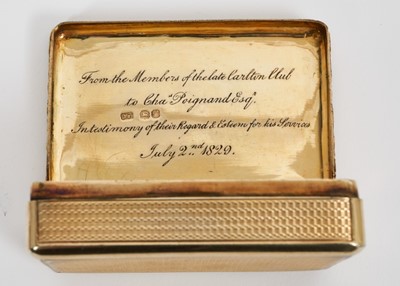 From the Members of the late Carlton Club
to Chaˢ Poignand Esqʳ.
In testimony of their Regard & Esteem for his Services
July 2ⁿᵈ 1829.